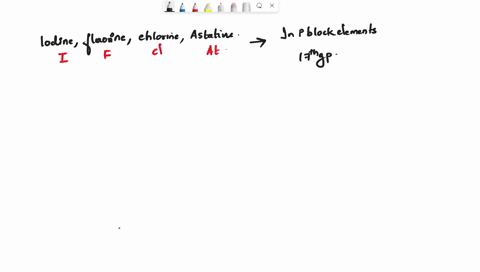 Iodine, flourine, chlorine, Astatine. → In P block elements
I F Cl At. 17th gp.